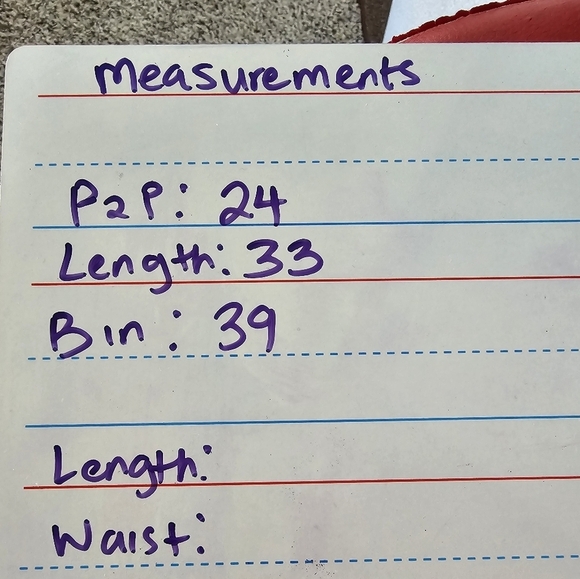 Measurements
P2P: 24
Length: 33
Bin: 39
Length:
Waist: